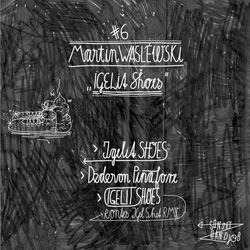 #6
Martin WASLEWSKI
„IGELIT Shoes"
> Igelit SHOES
> Dederon Pinafore
> IGELIT SHOES